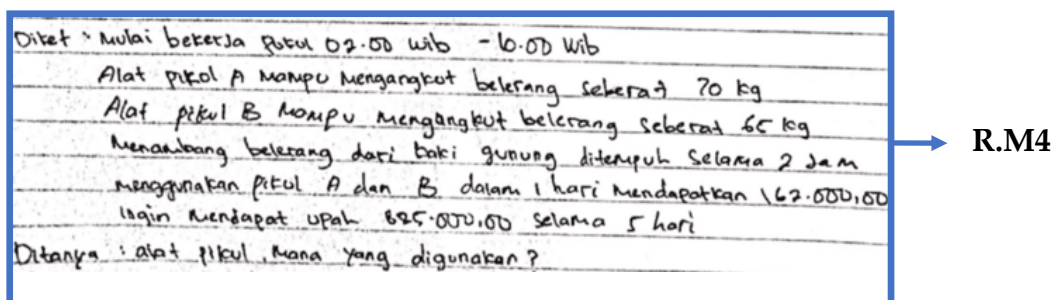 Diket : Mulai bekerja pukul 02.00 wib - 10.00 wib
Alat pikol A Mampu Mengangkut belerang seberat 70 kg
Alat pikul B Mampu mengangkut belerang seberat 65 kg
Menambang belerang dari kaki gunung ditempuh Selama 2 Jam
menggunakan pikul A dan B dalam 1 hari Mendapatkan 162.000,00
Ingin Mendapat upah 825.000,00 selama 5 hari
Ditanya : alat pikul mana yang digunakan?
R.M4